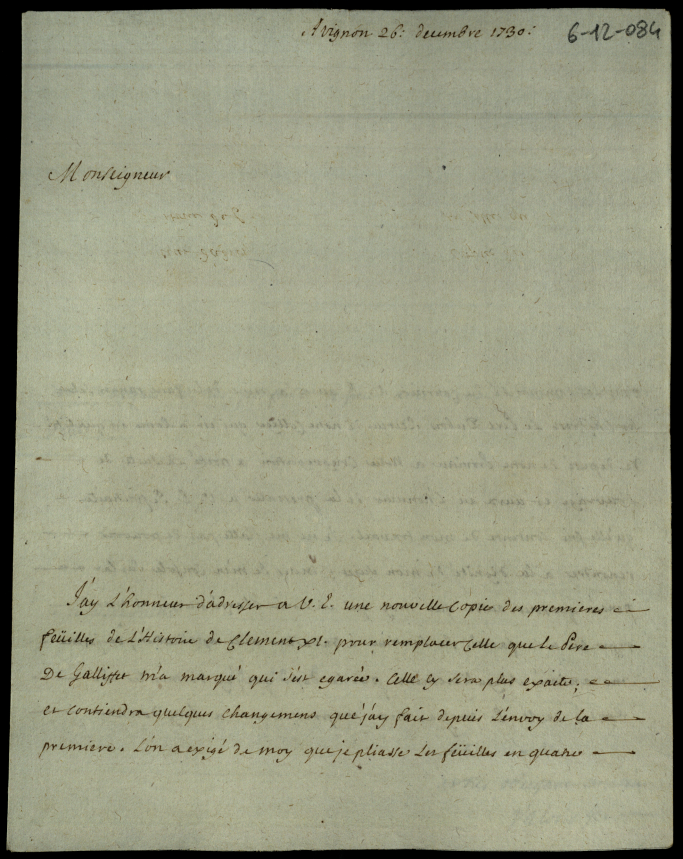 Avignon 26: decembre 1730:
6-12-084
Monseigneur
J'ay L'honneur d'adresser a V. E. une nouvelle Copie des premieres
feüilles de L'Histoire de Clement XI. pour remplacer Celle que Le Pere
De Galliffet m'a marqué qui s'est egarée. Celle Cy sera plus exacte;
et contiendra quelques changemens que j'ay fait depuis L'envoy de la
premiere. L'on a exigé de moy que je pliasse Les feüilles en quatre